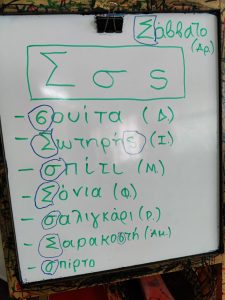 Σάββατο
(Δρ.)
Σ σ ς
- σουίτα (Δ.)
- Σωτηρής (Ι.)
- σπίτι (Μ.)
- Σόνια (Φ.)
- σαλιγκάρι (Ρ.)
- Σαρακοστή (Λμ.)
- σπίρτο